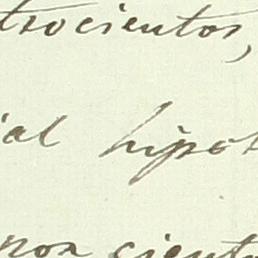 trocientos,
ial hipot
non cient